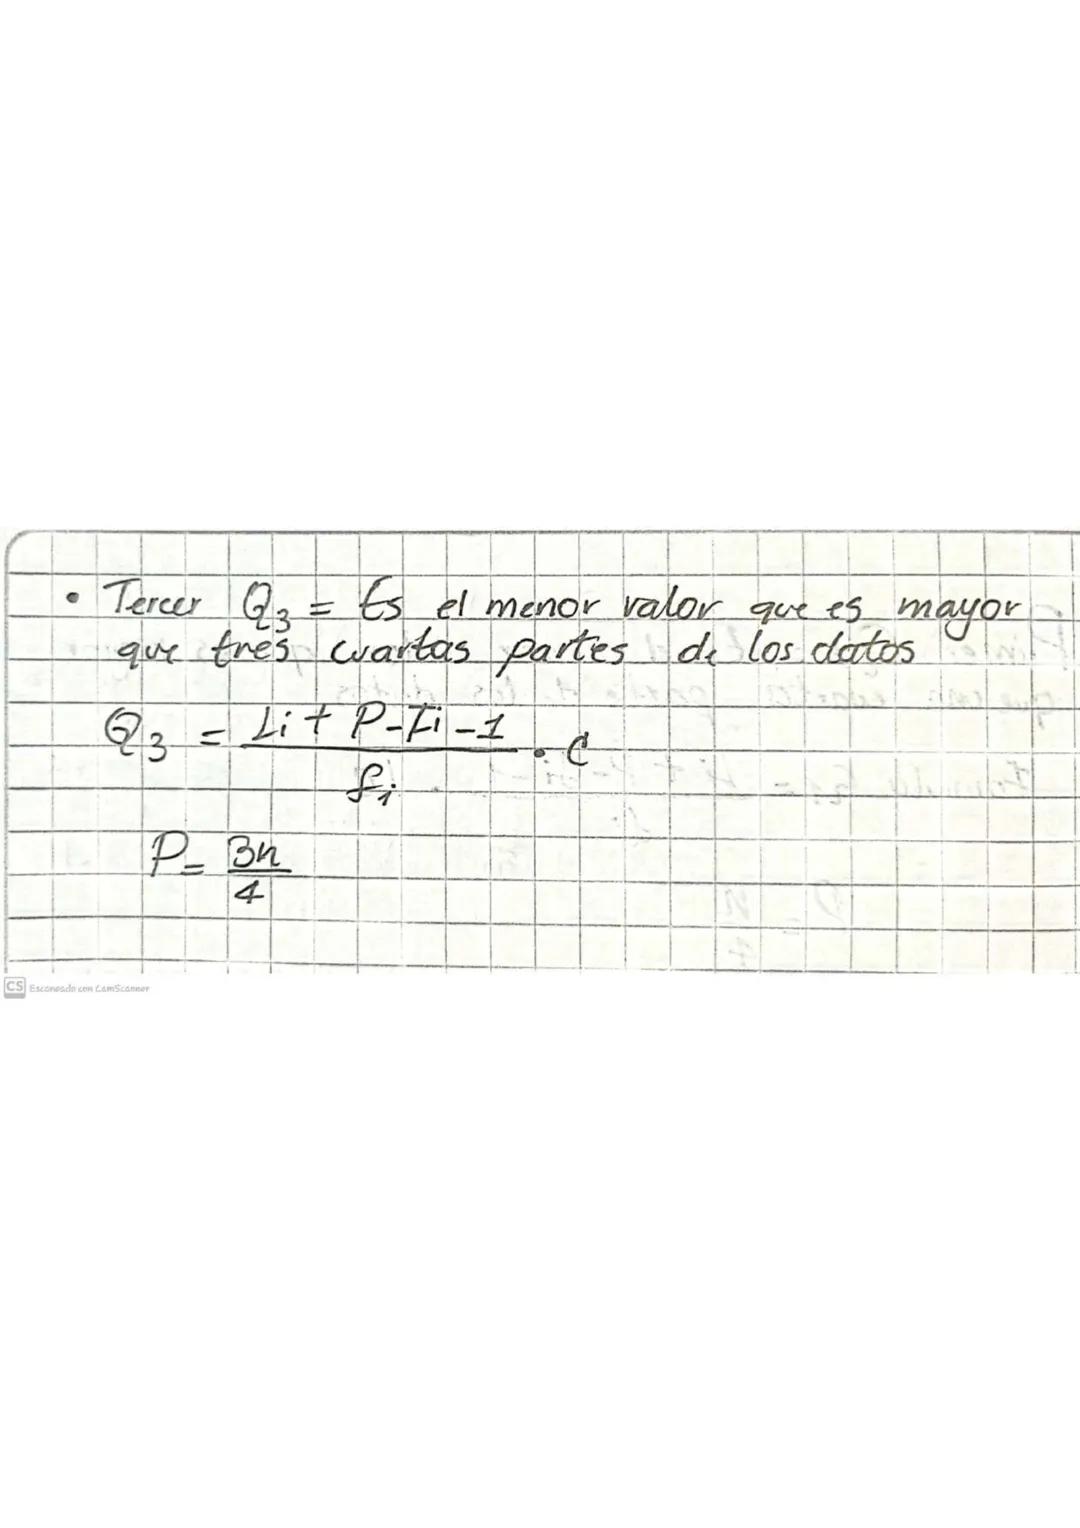 • Tercer Q₃ = Es el menor valor que es mayor
que tres cuartas partes de los datos
Q₃ = Li + P - Fi - 1 · C
fi
P = 3n
4
CS Escaneado con CamScanner